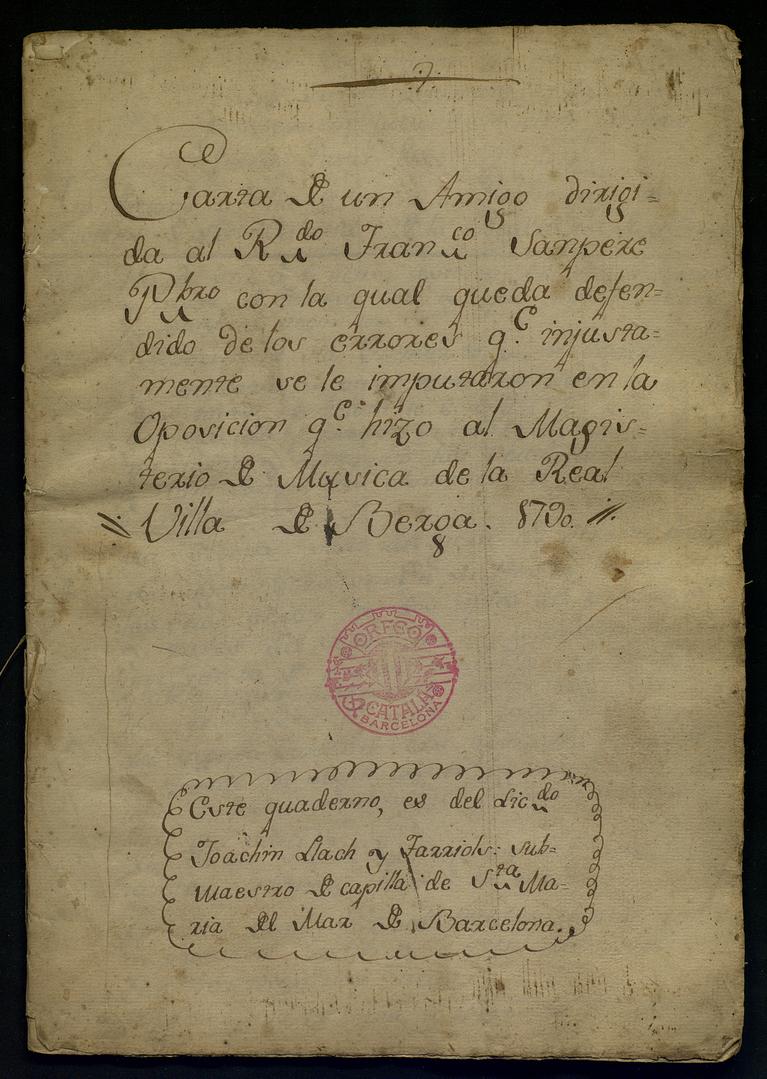 7
Carta de un Amigo dirigi=
da al R.do Fran.co Sanpere
Pbro con la qual queda defen=
dido de los errores q.e injusta=
mente se le imputaron en la
Oposicion q.e hizo al Magis=
terio de Musica de la Real
Villa de Berga. 1790.
ORFEÓ
CATALÀ
BARCELONA
Este quaderno, es del Lic.do
Joachin Llach y Farriols: sub=
maestro de capilla de S.ta Ma=
ria del Mar de Barcelona.